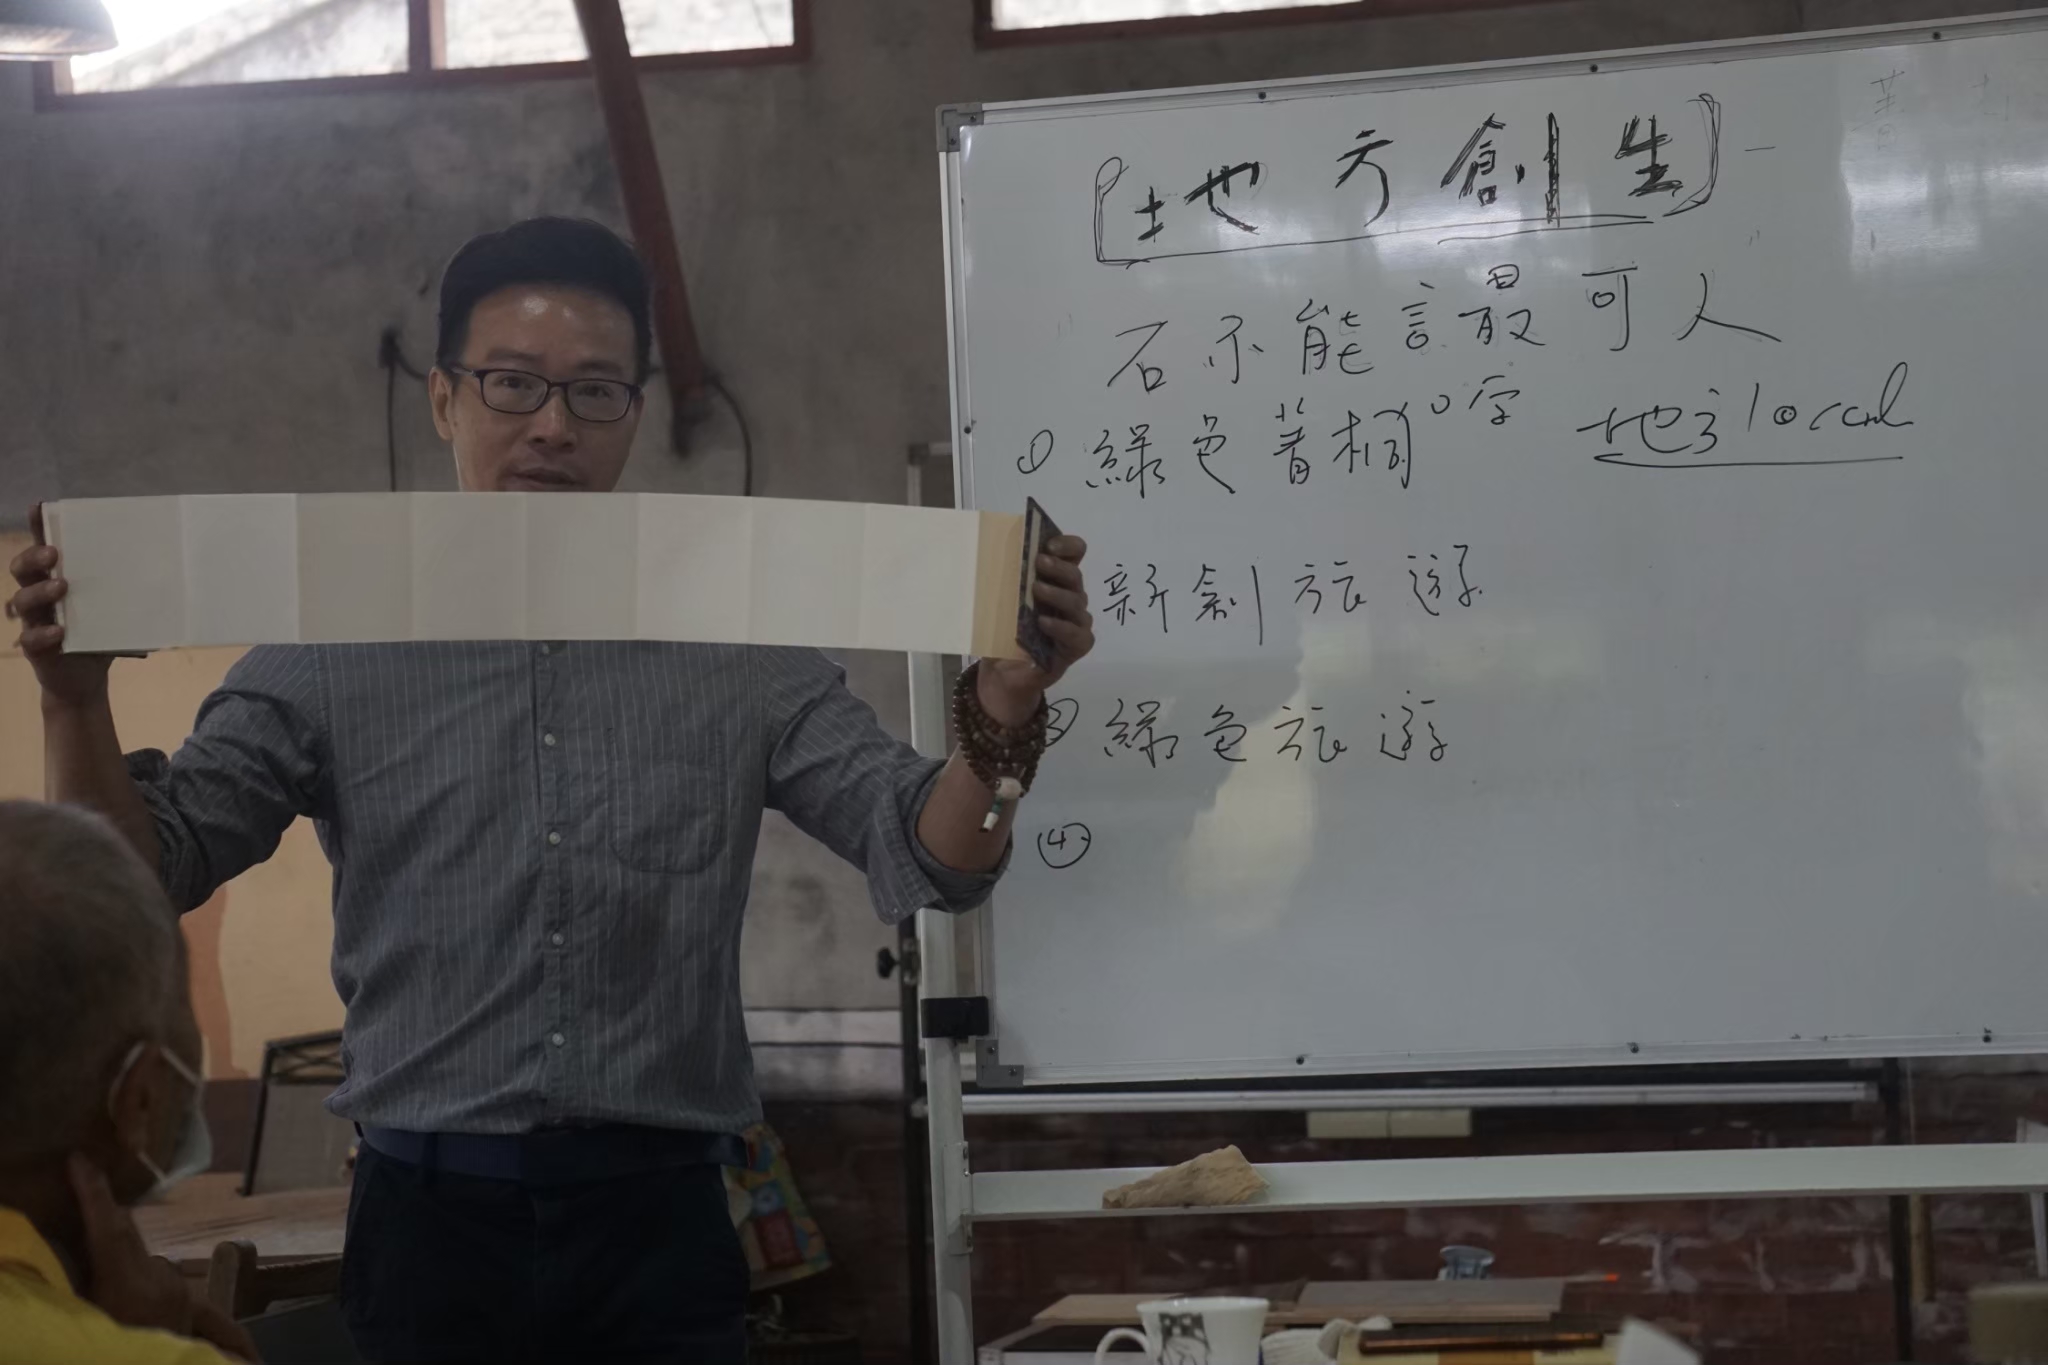 地方創生
石不能言最可人
① 綠色菁桐 口字
地方 local
新創旅遊
③ 綠色旅遊
④